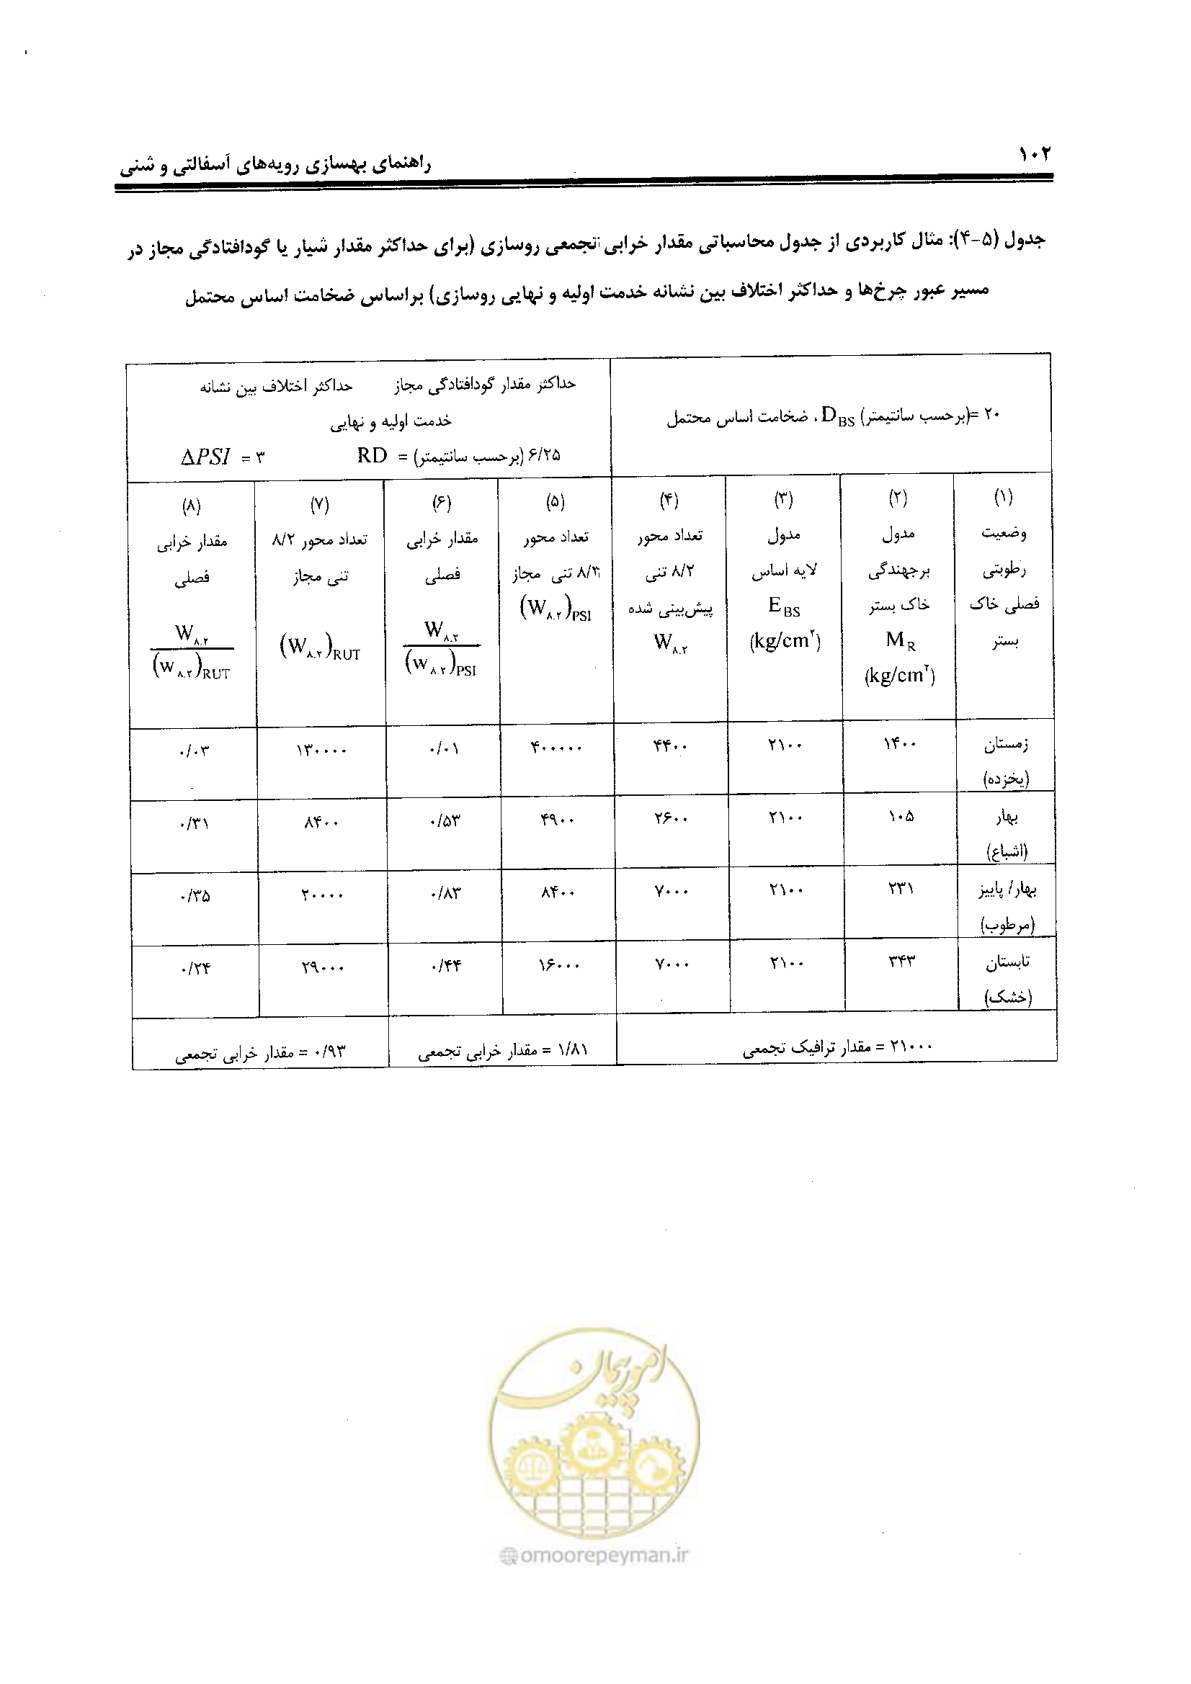 ۱۰۲
راهنمای بهسازی رویه‌های آسفالتی و شنی
جدول (۵-۴): مثال کاربردی از جدول محاسباتی مقدار خرابی تجمعی روسازی (برای حداکثر مقدار شیار یا گودافتادگی مجاز در
مسیر عبور چرخ‌ها و حداکثر اختلاف بین نشانه خدمت اولیه و نهایی روسازی) براساس ضخامت اساس محتمل
۲۰ =(برحسب سانتیمتر) D_BS ، ضخامت اساس محتمل
حداکثر مقدار گودافتادگی مجاز حداکثر اختلاف بین نشانه
خدمت اولیه و نهایی
۶/۲۵ (برحسب سانتیمتر) = RD ΔPSI = ۳
(۱) وضعیت رطوبتی فصلی خاک بستر
(۲) مدول برجهندگی خاک بستر M_R (kg/cm²)
(۳) مدول لایه اساس E_BS (kg/cm²)
(۴) تعداد محور ۸/۲ تنی پیش‌بینی شده W_۸.۲
(۵) تعداد محور ۸/۲ تنی مجاز (W_۸.۲)_PSI
(۶) مقدار خرابی فصلی W_۸.۲ / (W_۸.۲)_PSI
(۷) تعداد محور ۸/۲ تنی مجاز (W_۸.۲)_RUT
(۸) مقدار خرابی فصلی W_۸.۲ / (W_۸.۲)_RUT
زمستان (یخزده) ۱۴۰۰ ۲۱۰۰ ۴۴۰۰ ۴۰۰۰۰۰ ۰/۰۱ ۱۳۰۰۰۰ ۰/۰۳
بهار (اشباع) ۱۰۵ ۲۱۰۰ ۲۶۰۰ ۴۹۰۰ ۰/۵۳ ۸۴۰۰ ۰/۳۱
بهار/ پاییز (مرطوب) ۲۳۱ ۲۱۰۰ ۷۰۰۰ ۸۴۰۰ ۰/۸۳ ۲۰۰۰۰ ۰/۳۵
تابستان (خشک) ۳۴۳ ۲۱۰۰ ۷۰۰۰ ۱۶۰۰۰ ۰/۴۴ ۲۹۰۰۰ ۰/۲۴
۲۱۰۰۰ = مقدار ترافیک تجمعی
۱/۸۱ = مقدار خرابی تجمعی
۰/۹۳ = مقدار خرابی تجمعی
امور پیمان
@omoorepeyman.ir